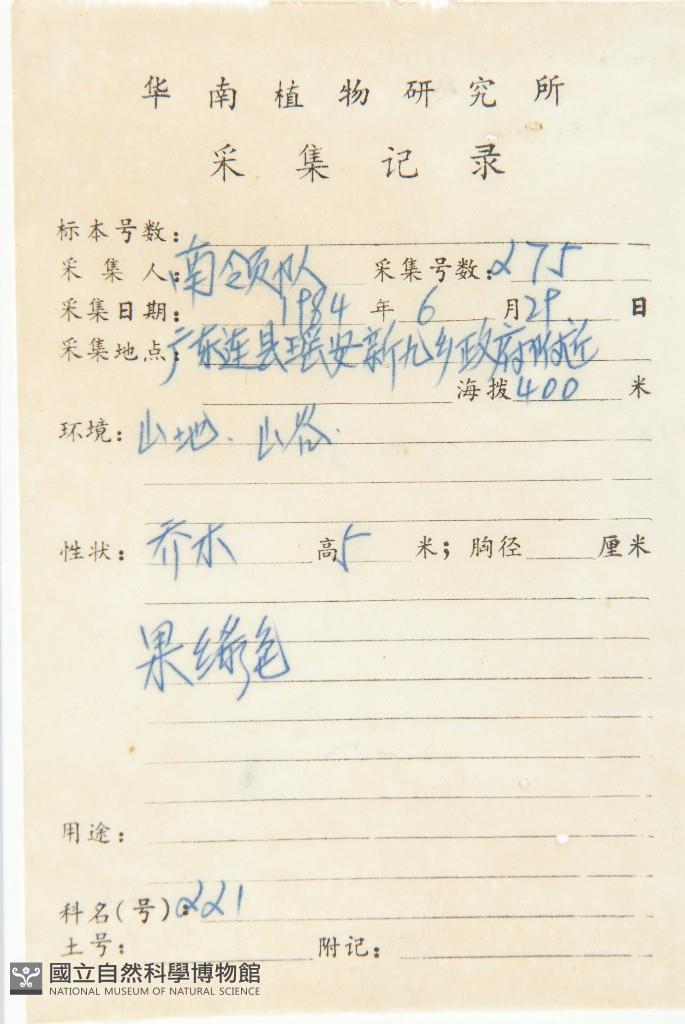 华南植物研究所
采集记录
标本号数:
采集人:南领队 采集号数:275
采集日期:1984年6月29日
采集地点:广东连县瑶安新九乡政府附近
海拨400米
环境:山地.山谷.
性状:乔木 高5米;胸径 厘米
果绿色
用途:
科名(号):221
土号: 附记:
國立自然科學博物館
NATIONAL MUSEUM OF NATURAL SCIENCE